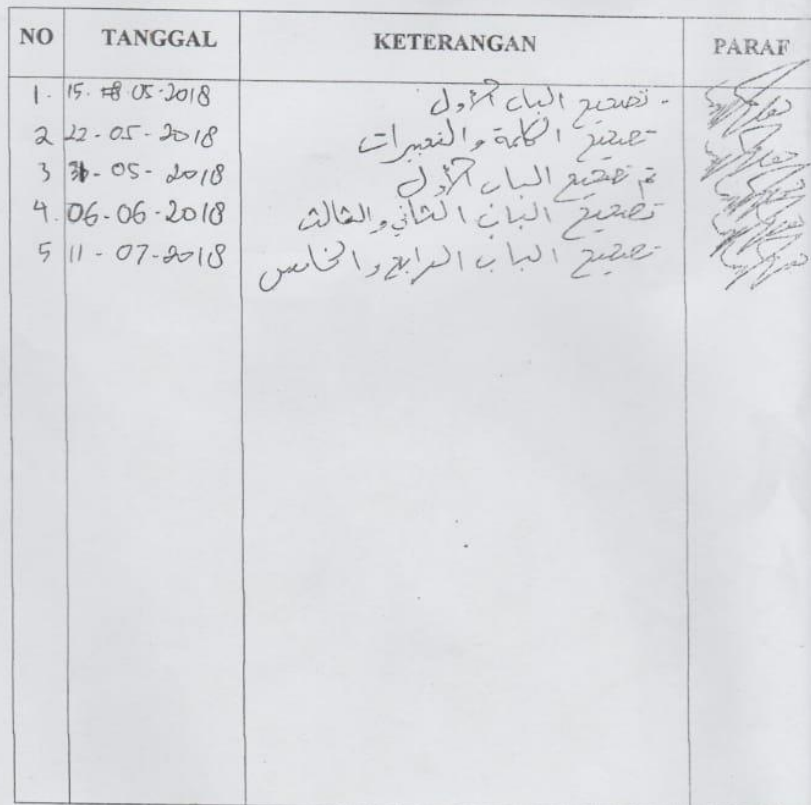 NO TANGGAL KETERANGAN PARAF
1. 15. 05-2018 - تصحيح الباب الأول
2 22-05-2018 تصحيح الكلمة والتعبيرات
3 05-2018 تم تصحيح الباب الأول
4. 06-06-2018 تصحيح الباب الثاني والثالث
5 11-07-2018 تصحيح الباب الرابع والخامس